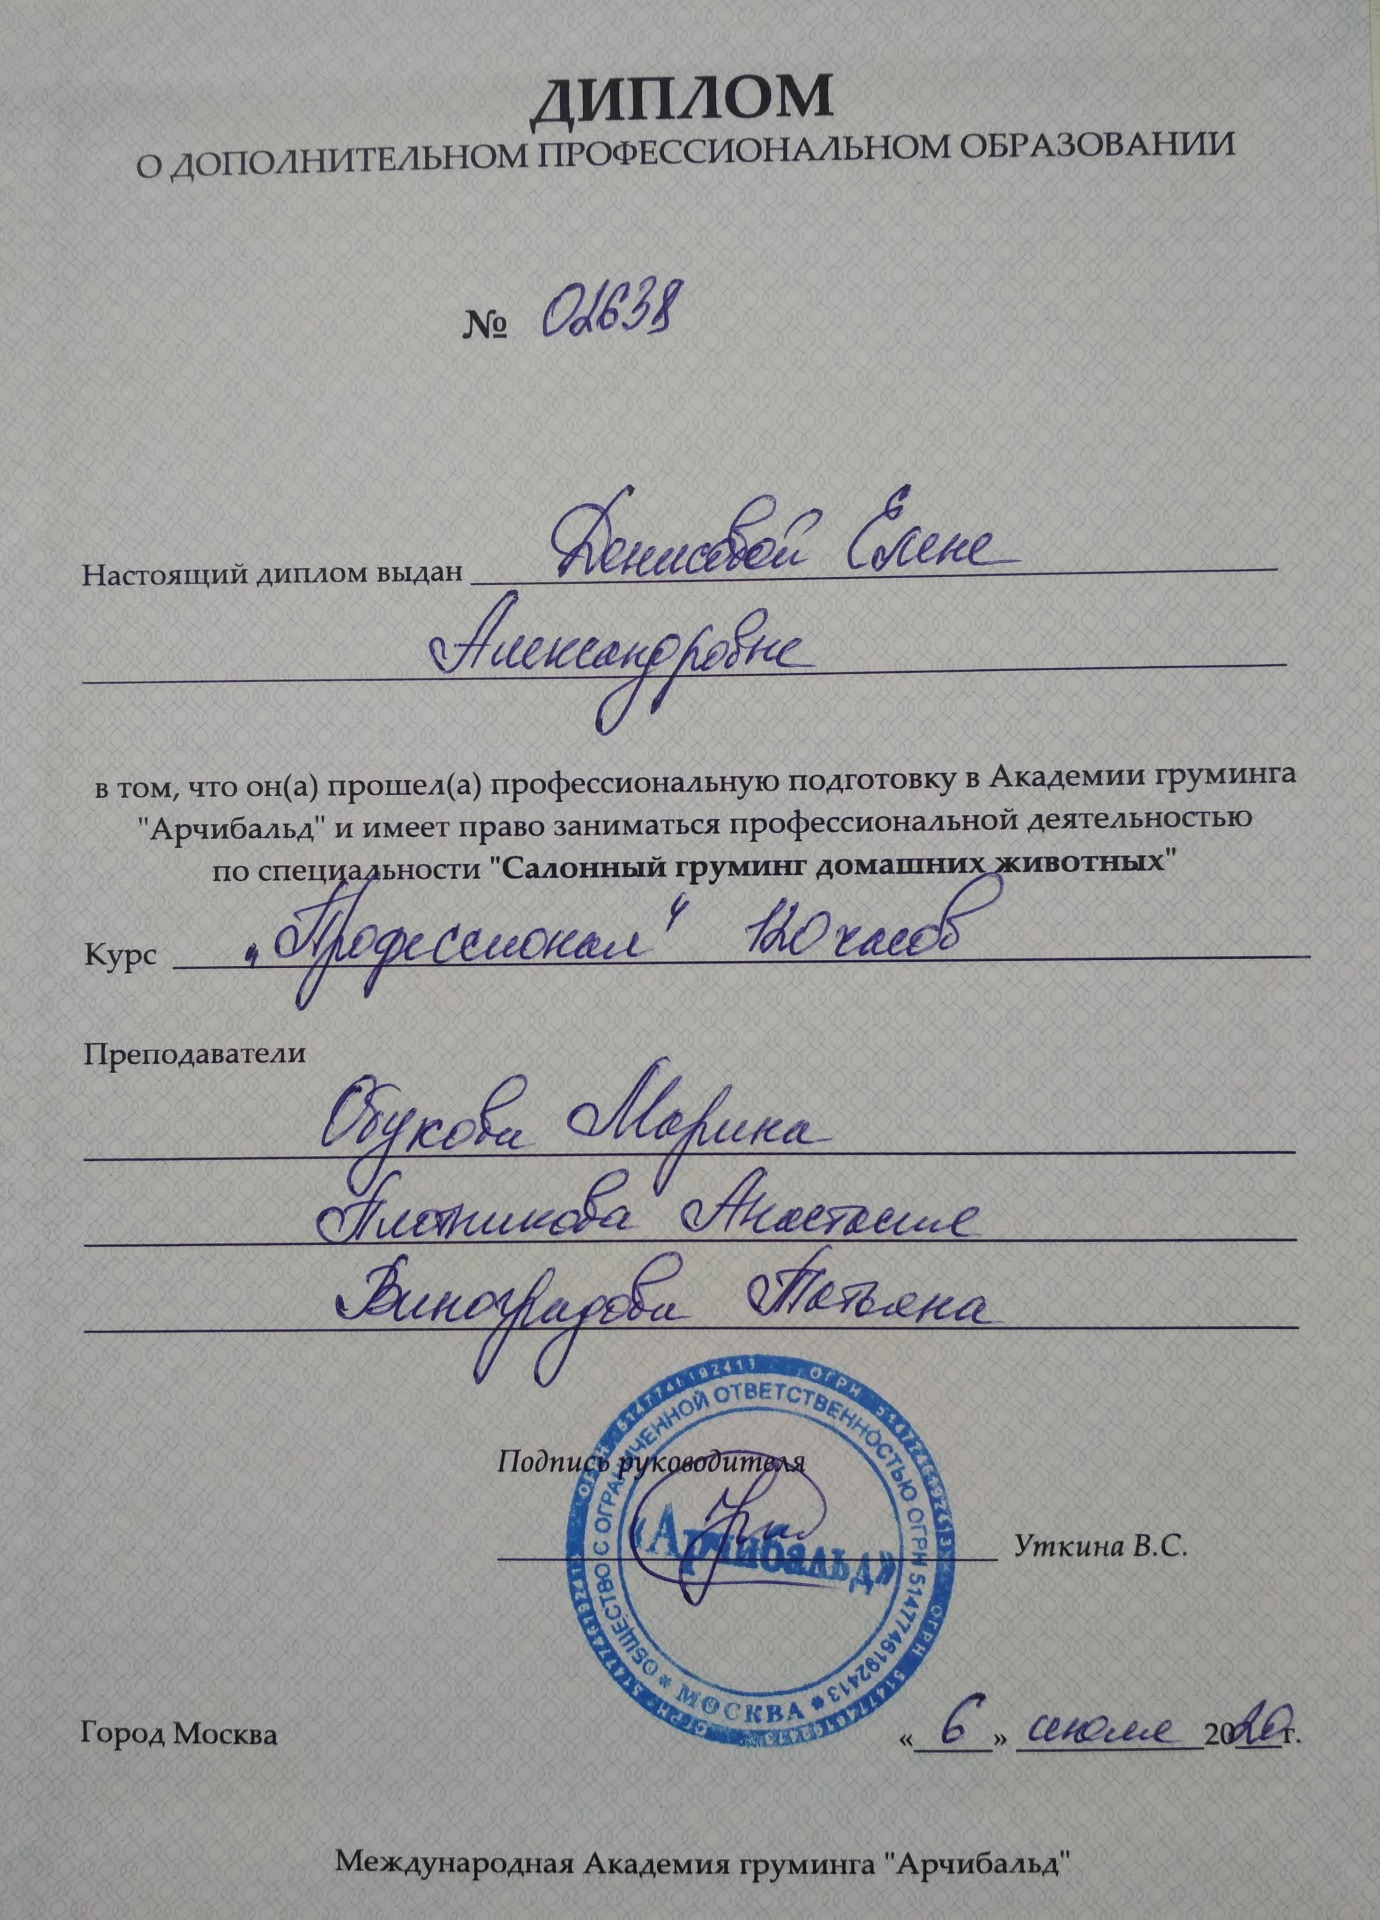 ДИПЛОМ
О ДОПОЛНИТЕЛЬНОМ ПРОФЕССИОНАЛЬНОМ ОБРАЗОВАНИИ
№ 02638
Настоящий диплом выдан Денисовой Елене
Александровне
в том, что он(а) прошел(а) профессиональную подготовку в Академии груминга
"Арчибальд" и имеет право заниматься профессиональной деятельностью
по специальности "Салонный груминг домашних животных"
Курс „Профессионал“ 120 часов
Преподаватели
Обукова Марина
Плотникова Анастасия
Виноградова Татьяна
Подпись руководителя
Уткина В.С.
ОГРН 5147746192413 ОГРН 5147746192413 ОГРН 5147746192413 ОГРН 5147746192413
ОБЩЕСТВО С ОГРАНИЧЕННОЙ ОТВЕТСТВЕННОСТЬЮ ОГРН 5147746192413
* МОСКВА *
«Арчибальд»
Город Москва
«6» июля 2020г.
Международная Академия груминга "Арчибальд"